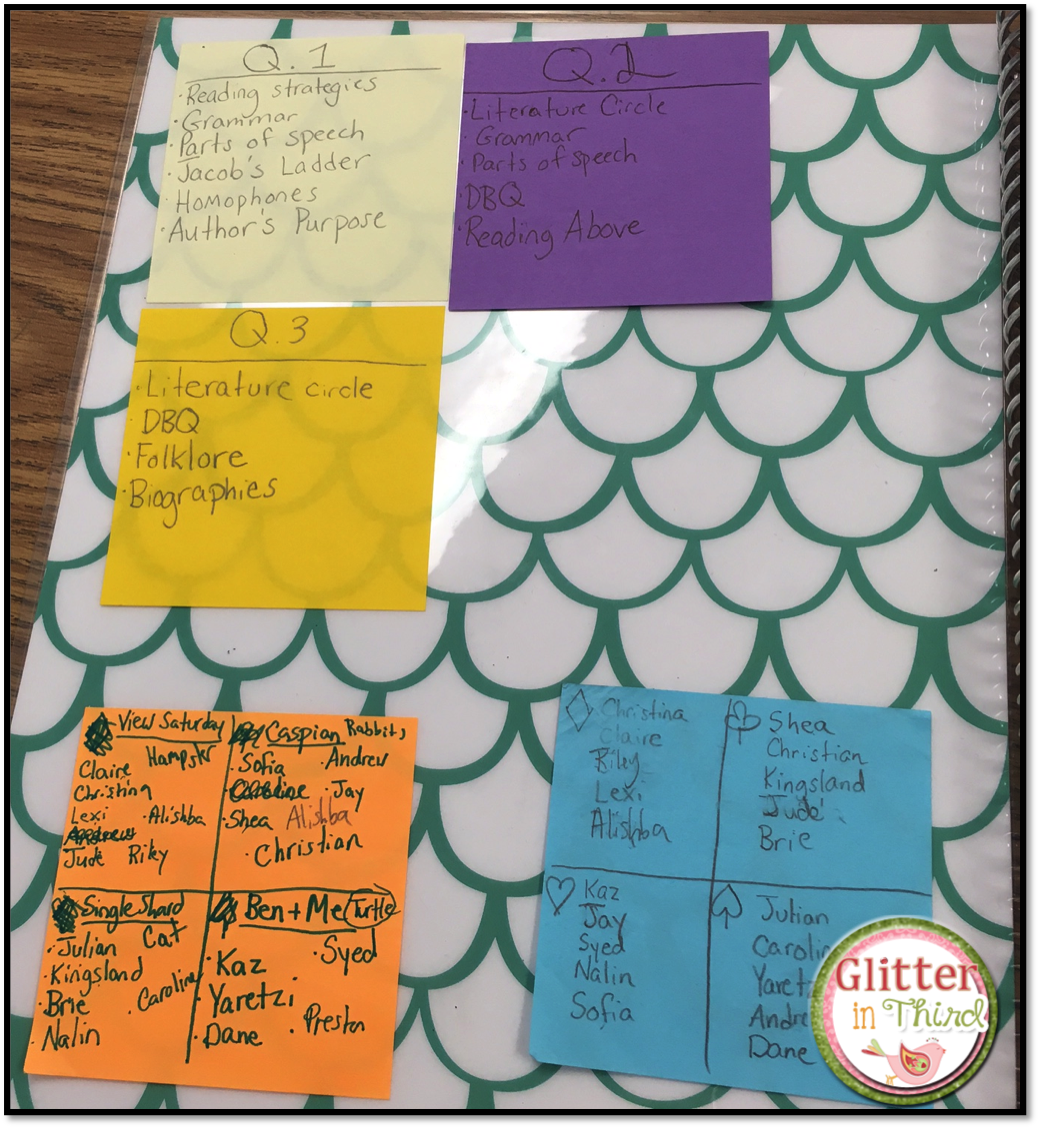 Q.1
·Reading strategies
·Grammar
·Parts of speech
·Jacob's Ladder
·Homophones
·Author's Purpose
Q.2
·Literature Circle
·Grammar
·Parts of speech
·DBQ
·Reading Above
Q.3
·Literature circle
·DBQ
·Folklore
·Biographies
View Saturday
Hampstr
Claire
Christina
Lexi ·Alishba
Andrew
Jude Riley
Caspian Rabbits
·Sofia ·Andrew
·Caroline ·Jay
·Shea Alishba
·Christian
Single Shard
·Julian Cat
·Kingsland
·Brie ·Caroline
·Nalin
Ben + Me Turtle
·Syed
·Kaz
·Yaretzi
·Dane ·Preston
Christina
Claire
Riley
Lexi
Alishba
Shea
Christian
Kingsland
Jude
Brie
Kaz
Jay
Syed
Nalin
Sofia
Julian
Carolin
Yaretz
Andre
Dane
Glitter
in Third